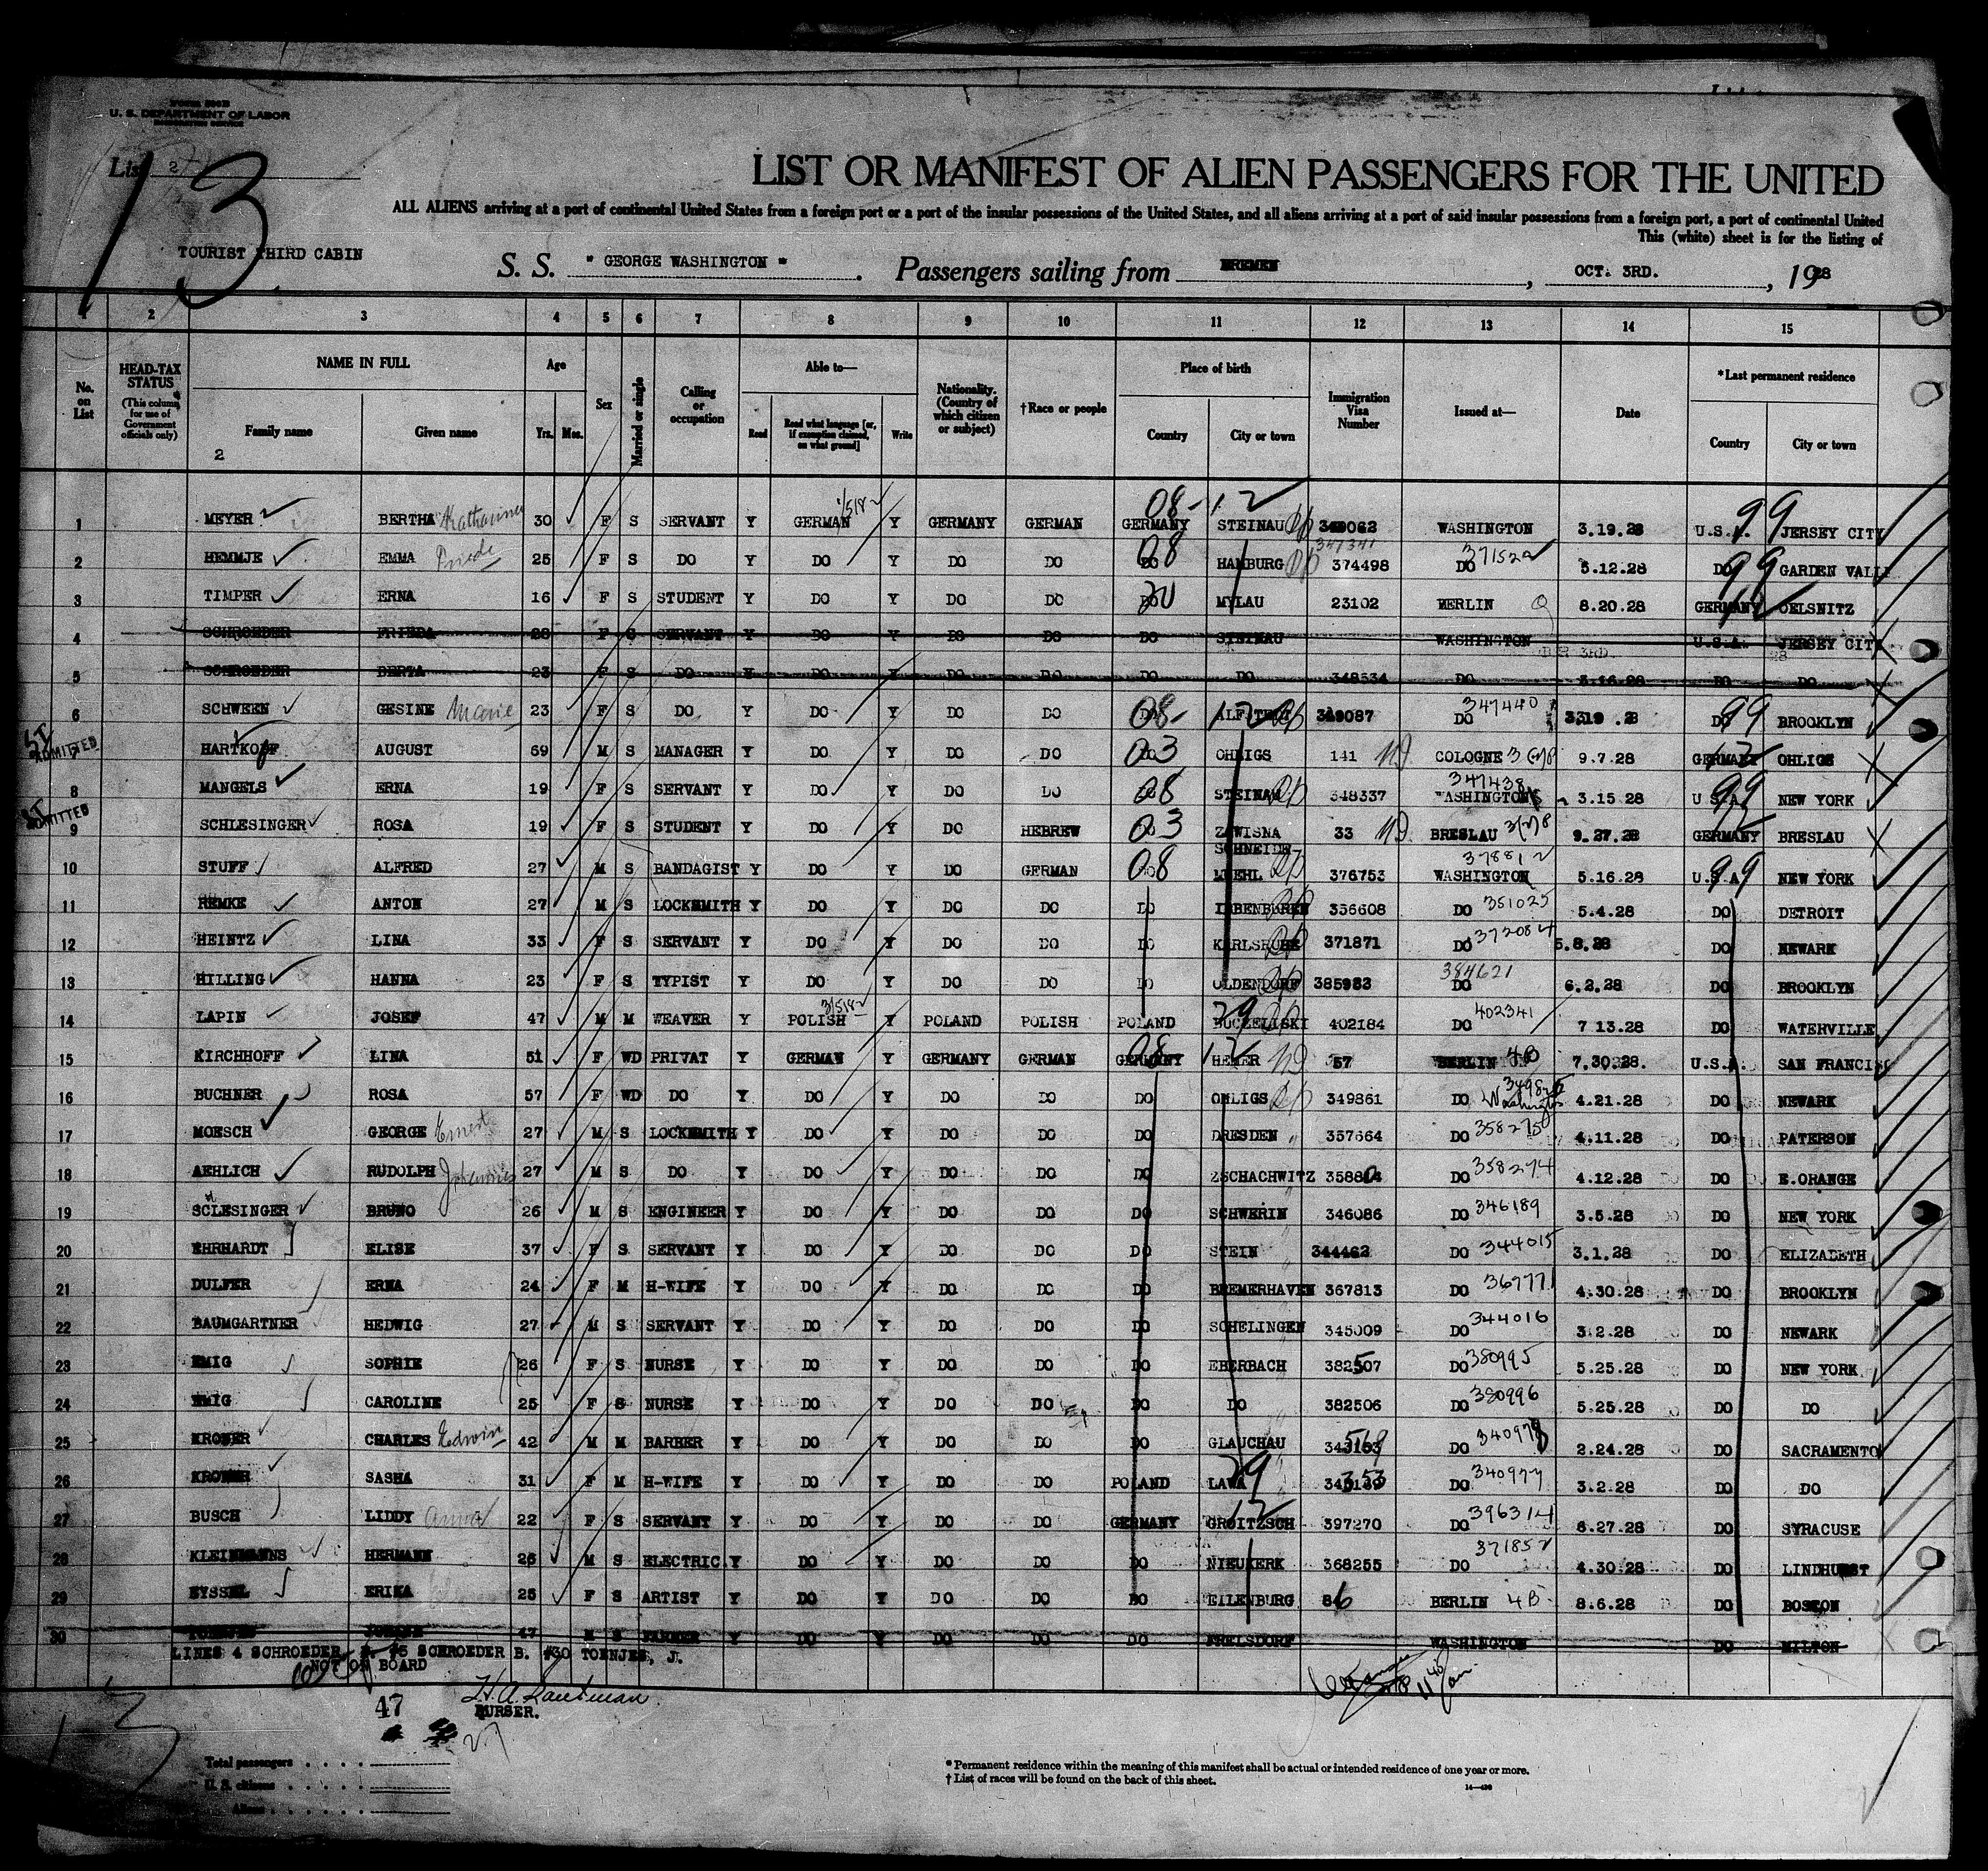 FORM 500B
U. S. DEPARTMENT OF LABOR
List 2
13
LIST OR MANIFEST OF ALIEN PASSENGERS FOR THE UNITED
ALL ALIENS arriving at a port of continental United States from a foreign port or a port of the insular possessions of the United States, and all aliens arriving at a port of said insular possessions from a foreign port, a port of continental United
This (white) sheet is for the listing of
TOURIST THIRD CABIN
S. S. " GEORGE WASHINGTON " . Passengers sailing from BREMEN , OCT. 3RD. , 1928
1 2 3 4 5 6 7 8 9 10 11 12 13 14 15
No. on List HEAD-TAX STATUS (This column for use of Government officials only) NAME IN FULL Family name Given name Age Yrs. Mos. Sex Married or single Calling or occupation Able to— Read Read what language [or, if exemption claimed, on what ground] Write Nationality. (Country of which citizen or subject) †Race or people Place of birth Country City or town Immigration Visa Number Issued at— Date *Last permanent residence Country City or town
2
1 MEYER BERTHA Katharina 30 F S SERVANT Y GERMAN Y GERMANY GERMAN GERMANY STEINAU 349062 WASHINGTON 3.19.28 U.S.A. JERSEY CITY
2 HEMMJE EMMA Friede 25 F S DO Y DO Y DO DO DO HAMBURG 374498 DO 371522 5.12.28 DO GARDEN VALL
3 TIMPER ERNA 16 F S STUDENT Y DO Y DO DO DO MYLAU 23102 BERLIN 8.20.28 GERMANY OELSNITZ
4 SCHROEDER FRIEDA 28 F S SERVANT Y DO Y DO DO DO STEINAU WASHINGTON U.S.A. JERSEY CITY
5 SCHROEDER BERTA 23 F S DO Y DO Y DO DO DO DO 348534 DO 3.16.28 DO DO
6 SCHWEEN GESINE Marie 23 F S DO Y DO Y DO DO DO 349087 DO 347440 DO BROOKLYN
7 ADMITTED HARTKOPF AUGUST 59 M S MANAGER Y DO Y DO DO DO OHLIGS 141 COLOGNE 9.7.28 GERMANY OHLIGS
8 MANGELS ERNA 19 F S SERVANT Y DO Y DO DO DO STEINAU 348337 WASHINGTON 347438 3.15.28 U.S.A. NEW YORK
9 ADMITTED SCHLESINGER ROSA 19 F S STUDENT Y DO Y DO HEBREW DO ZAWISNA 33 BRESLAU 9.27.28 GERMANY BRESLAU
10 STUFF ALFRED 27 M S BANDAGIST Y DO Y DO GERMAN DO SCHNEIDEMUEHL 376753 WASHINGTON 5.16.28 U.S.A. NEW YORK
11 REMKE ANTON 27 M S LOCKSMITH Y DO Y DO DO DO IBBENBUREN 356608 DO 351025 5.4.28 DO DETROIT
12 HEINTZ LINA 33 F S SERVANT Y DO Y DO DO DO KARLSRUHE 371871 DO 372084 5.8.28 DO NEWARK
13 HILLING HANNA 23 F S TYPIST Y DO Y DO DO DO OLDENDORF 385983 DO 384621 6.2.28 DO BROOKLYN
14 LAPIN JOSEF 47 M M WEAVER Y POLISH Y POLAND POLISH POLAND 402184 DO 402341 7 13.28 DO WATERVILLE
15 KIRCHHOFF LINA 51 F WD PRIVAT Y GERMAN Y GERMANY GERMAN GERMANY HEMER 57 BERLIN 4B 7.30.28. U.S.A. SAN FRANCISC
16 BUCHNER ROSA 57 F WD DO Y DO Y DO DO DO OHLIGS 349861 DO Washington 4.21.28 DO NEWARK
17 MOESCH GEORGE Ernest 27 M S LOCKSMITH Y DO Y DO DO DO DRESDEN 357664 DO 358275 4.11.28 DO PATERSON
18 AEHLICH RUDOLPH Johannes 27 M S DO Y DO Y DO DO DO ZSCHACHWITZ DO 358274 4.12.28 DO E.ORANGE
19 SCLESINGER BRUNO 26 M S ENGINEER Y DO Y DO DO DO SCHWERIN 346086 DO 346189 3.5.28 DO NEW YORK
20 EHRHARDT ELISE 37 F S SERVANT Y DO Y DO DO DO STEIN 344462 DO 344015 3.1.28 DO ELIZABETH
21 DULFER ERNA 24 F M H-WIFE Y DO Y DO DO DO BREMERHAVEN 367813 DO 367771 4.30.28 DO BROOKLYN
22 BAUMGARTNER HEDWIG 27 M S SERVANT Y DO Y DO DO DO SCHELINGEN 345009 DO 344016 3.2.28 DO NEWARK
23 EMIG SOPHIE 26 F S NURSE Y DO Y DO DO DO EBERBACH 382507 DO 380995 5.25.28 DO NEW YORK
24 EMIG CAROLINE 25 F S NURSE Y DO Y DO DO DO DO 382506 DO 380996 5.25.28 DO DO
25 KRONER CHARLES Edwin 42 M M BARBER Y DO Y DO DO DO GLAUCHAU DO 340978 2.24.28 DO SACRAMENTO
26 KRONER SASHA 31 F M H-WIFE Y DO Y DO DO POLAND LAWA DO 340977 3.2.28 DO DO
27 BUSCH LIDDY Anna 22 F S SERVANT Y DO Y DO DO GERMANY GROITZSCH 397270 DO 396314 6.27.28 DO SYRACUSE
28 KLEINMANNS HERMANN 26 M S ELECTRIC. Y DO Y DO DO DO NIEUKERK 368255 DO 371852 4.30.28 DO LINDHURST
29 EYSSEL ERIKA 25 F S ARTIST Y DO Y DO DO DO EILENBURG 86 BERLIN 4B 8.6.28 DO BOSTON
30 TOENJES 47 M S FARMER Y DO Y DO DO DO WASHINGTON DO MILTON
LINES 4 SCHROEDER F. #5 SCHROEDER B. #30 TOENJES, J.
NOT ON BOARD
47
PURSER.
27
Total passengers
U. S. citizens
Aliens
* Permanent residence within the meaning of this manifest shall be actual or intended residence of one year or more.
† List of races will be found on the back of this sheet.